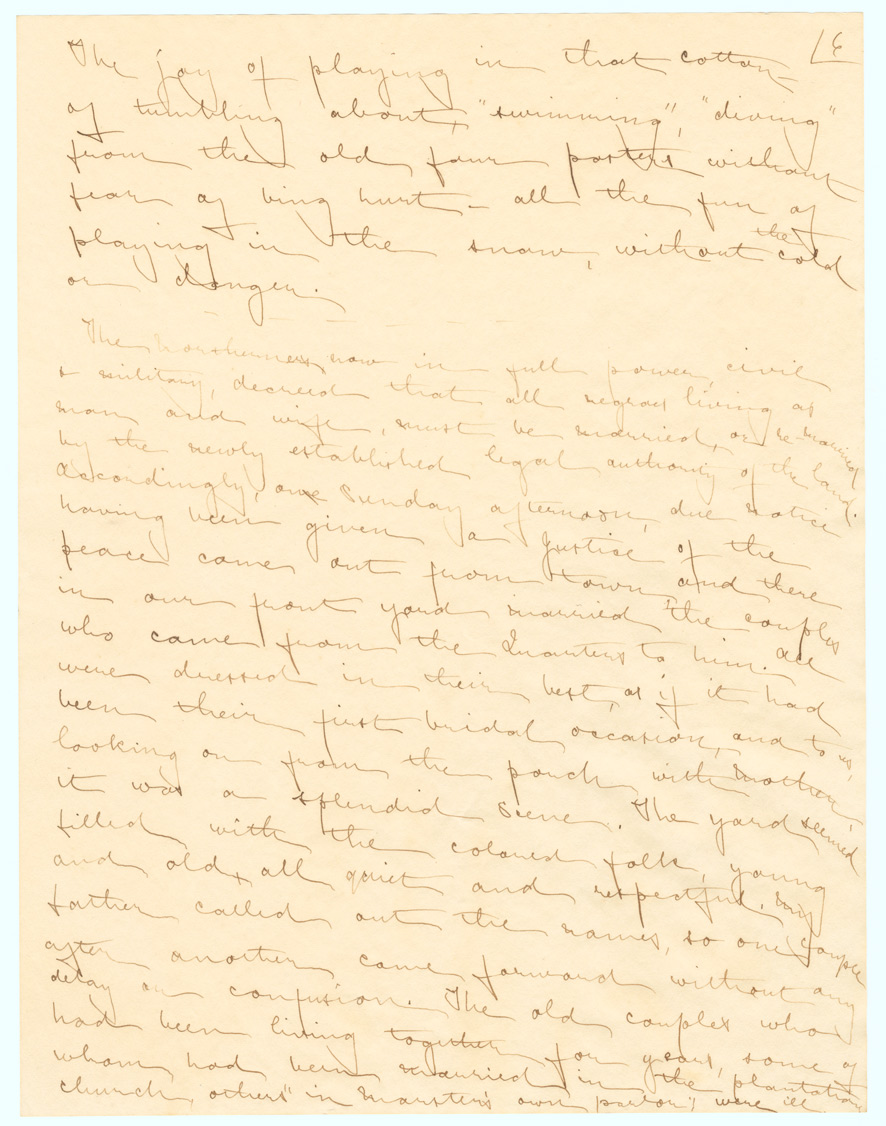 6
The joy of playing in that cotton -
of tumbling about, "swimming", "diving"
from the old four posters without
fear of being hurt - all the fun of
playing in the snow, without the cold
or danger.
The Northerners, now in full power, civil
& military, decreed that all negroes living as
man and wife, must be married, or re-married
by the newly established legal authority of the land.
Accordingly, one Sunday afternoon, due notice
having been given a Justice of the
peace came out from town and there
in our front yard married the couples
who came from the Quarters to him. All
were dressed in their best, as if it had
been their first bridal occasion, and to us,
looking on from the porch with Mother,
it was a splendid scene. The yard seemed
filled with the colored folk, young
and old, all quiet and respectful. My
father called out the names, so one couple
after another came forward without any
delay or confusion. The old couples who
had been living together for years, some of
whom had been married in the plantation
church, others "in Marster's own parlor", were ill